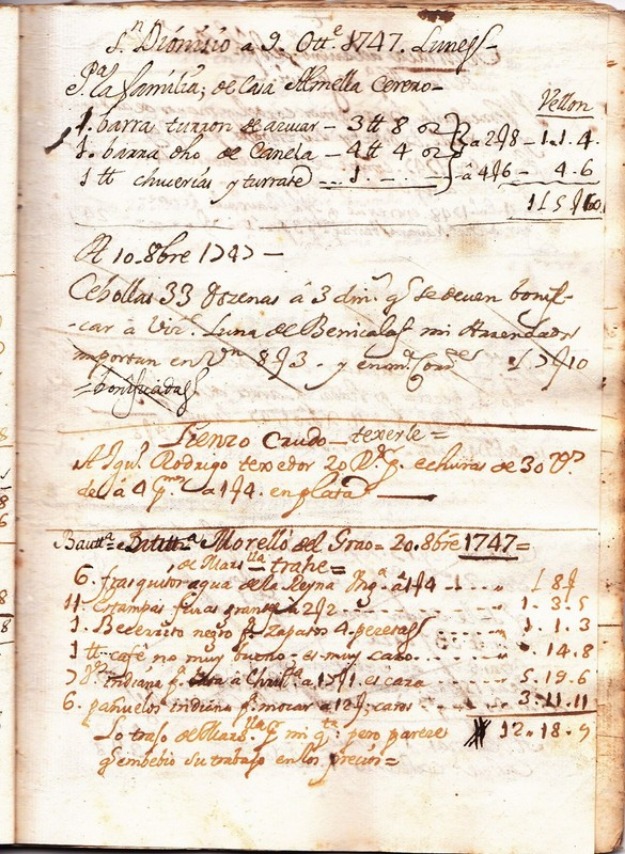 Sn. Dionisio a 9. Ottе. 1747. Lunes
Pa. la familia; de Casa Almella Cerero=
Vellon
1. barra turron de azucar – 3 tt 8 oz } a 2 8 – 1.1.4.
1. barra dho de Canela – 4 tt 4 oz
1 tt chucerias y turrate ... 1. – – } â 4 6 – 4.6
1 L 5 10
A 10. 8bre 1747 –
Cebollas 33 dozenas â 3 din.s q se deven bonifi-
-car â Vizte. Luna de Benicalaf mi Arrendador
importan en Vn 8 3. y en L 7 10
=bonificadas
Lienzo Crudo – texerle =
A Rodrigo texedor 20 echuras de 30 Vs.
de â 4 a 1 4. en plata
Bautta. Morelló del Grao= 20. 8bre 1747=
de Marslla trahe=
6. frasquitos agua de la Reyna Ung.a â 1 4 ... L 8
11. Estampas finas grandes a 2 2 ... 1.3.5
1. Becerrito negro pa. zapatos 4. pezetas ... 1.1.3
1 tt café no muy bueno – es muy caro ... 14.8
7 indiana pa. a Christna. a 17 1. es cara ... 5.19.6
6. pañuelos indiana pa. mocar a 12; caros ... 3.11.11
Lo trajo de Marslla. pr mi qta: pero parece 12.18.9
q embebio su trabajo en los precios=